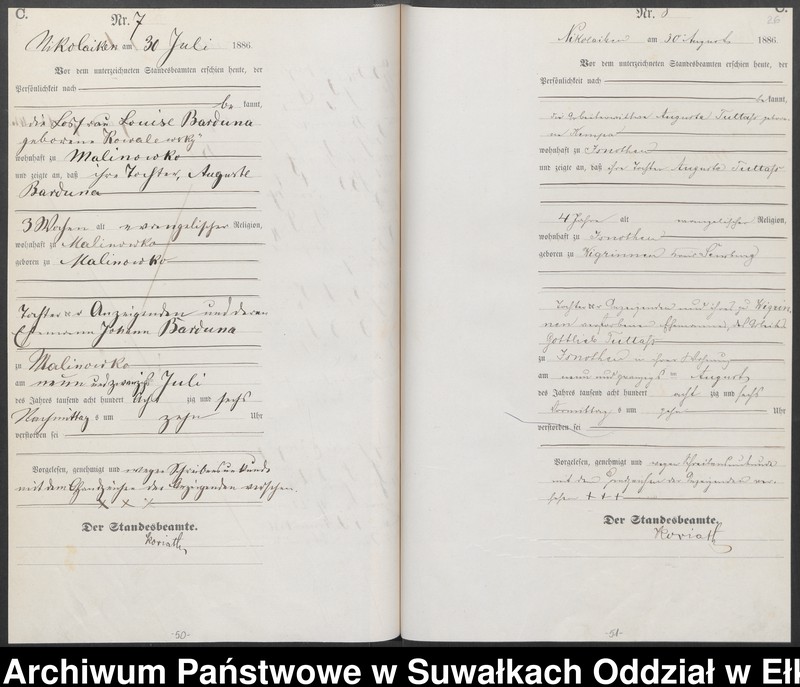 C.
Nr. 7
Nikolaiken am 30 Juli 1886.
Vor dem unterzeichneten Standesbeamten erschien heute, der
Persönlichkeit nach
be kannt,
die Losfrau Louise Barduna
geborene Kowalewsky
wohnhaft zu Malinowko
und zeigte an, daß ihre Tochter, Auguste
Barduna
3 Wochen alt evangelischer Religion,
wohnhaft zu Malinowko
geboren zu Malinowko
Tochter der Anzeigenden und deren
Ehemann Johann Barduna
zu Malinowko
am neun und zwanzigst Juli
des Jahres tausend acht hundert acht zig und sechs
Nachmittag s um zehn Uhr
verstorben sei
Vorgelesen, genehmigt und wegen Schreibensunkunde
mit dem Handzeichen der Anzeigenden versehen.
X X X
Der Standesbeamte.
Koriath
-50-
C.
26
Nr. 8
Nikolaiken am 30 August 1886
Vor dem unterzeichneten Standesbeamten erschien heute, der
Persönlichkeit nach
be kannt,
die Arbeiterwittwe Auguste Tullass gebore
ne
wohnhaft zu Jonothen
und zeigte an, daß ihre Tochter Auguste Tullass
4 Jahre alt evangelischer Religion,
wohnhaft zu Jonothen
geboren zu Wigrinnen Kreis Sensburg
Tochter der Anzeigenden und ihres zu Wigrin
nen verstorbenen Ehemannes, des Arbeiters
Gottlieb Tullass
zu Jonothen in ihrer Wohnung
am neun und zwanzigsten August
des Jahres tausend acht hundert acht zig und sechs
Vormittag s um zehn Uhr
verstorben sei
Vorgelesen, genehmigt und wegen Schreibensunkunde
mit dem Handzeichen der Anzeigenden ver-
sehen + + +
Der Standesbeamte.
Koriath
-51-
Archiwum Państwowe w Suwałkach Oddział w Ełk